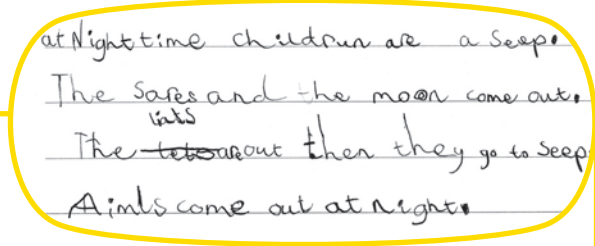 at Night time childrun are a Seep.
The Sares and the moon come out.
The liats are out then they go to Seep
Aimls come out at night.